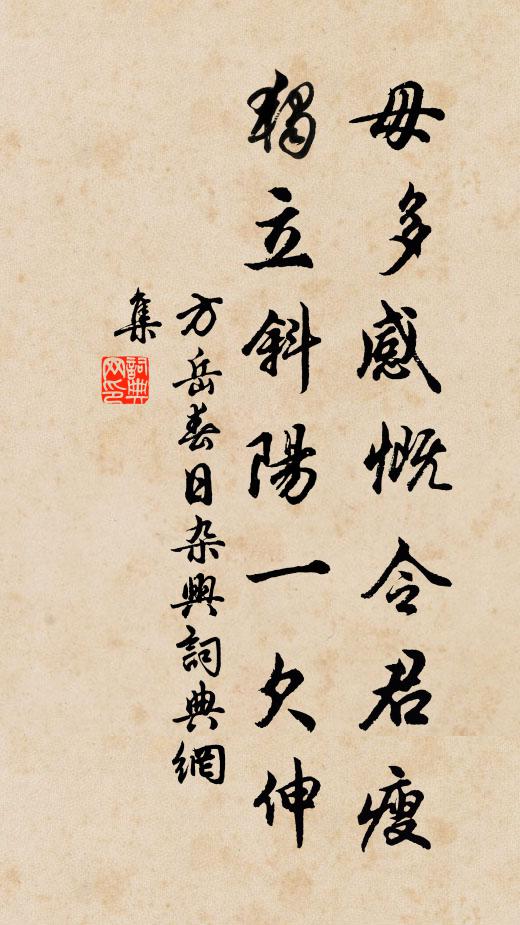 毋多感慨令君瘦
獨立斜陽一欠伸
方岳春日杂興詞典網
集
詞典
网印